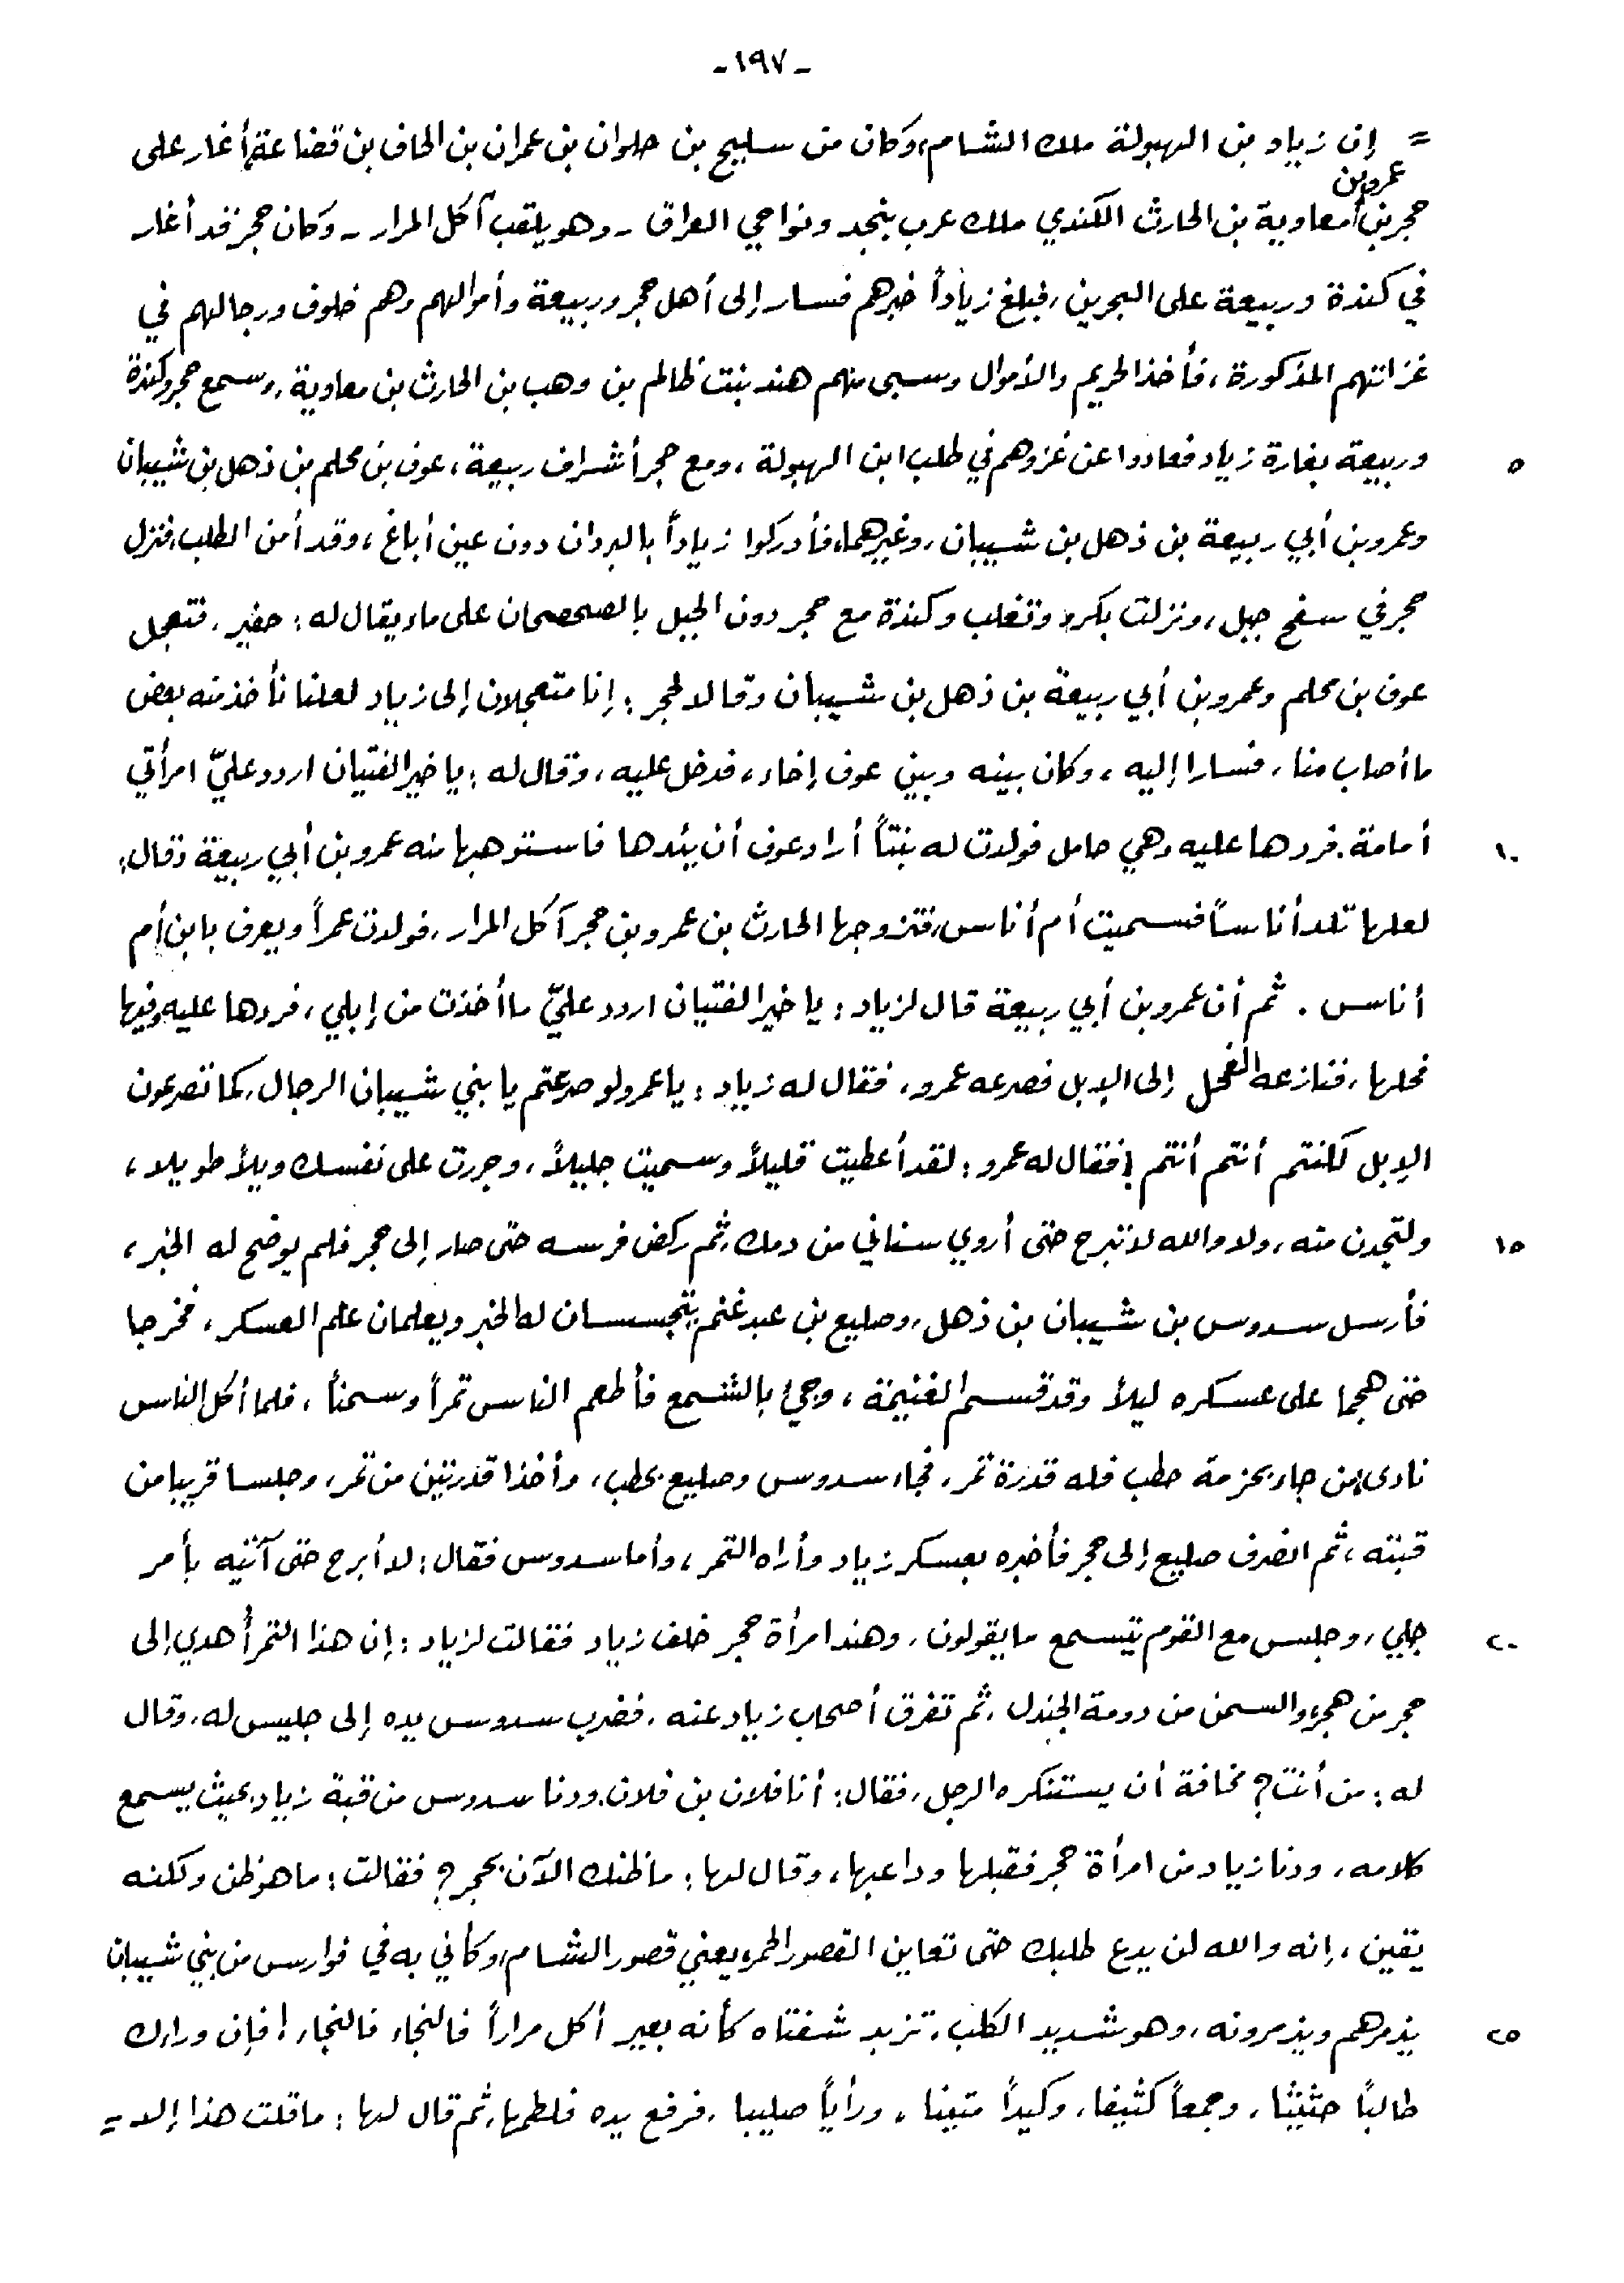 -١٩٧-
= إن زياد بن الهبولة ملك الشام، وكان من سليح بن حلوان بن عمران بن الحاف بن قضاعة، أغار على
عمرو بن
حجر بن معاوية بن الحارث الكندي ملك عرب بنجد ونواحي العراق - وهو يلقب آكل المرار - وكان حجر قد أغار
في كندة وربيعة على البحرين، فبلغ زياداً خبرهم فسار إلى أهل حجر وربيعة وأموالهم وهم خلوف ورجالهم في
غزاتهم المذكورة، فأخذ الحريم والأموال وسبى منهم هند بنت ظالم بن وهب بن الحارث بن معاوية، وسمع حجر وكندة
٥ وربيعة بغارة زياد فعادوا عن غزوهم في طلب ابن الهبولة، ومع حجر أشراف ربيعة، عوف بن محلم بن ذهل بن شيبان
وعمرو بن أبي ربيعة بن ذهل بن شيبان، وغيرهما، فأدركوا زياداً بالبردان دون عين أباغ، وقد أمن الطلب، فنزل
حجر في سفح جبل، ونزلت بكر وتغلب وكندة مع حجر دون الجبل بالصحصحان على ماء يقال له: حفير. فتعجل
عوف بن محلم وعمرو بن أبي ربيعة بن ذهل بن شيبان وقالا لحجر: إنا متعجلان إلى زياد لعلنا نأخذ منه بعض
ما أصاب منا، فسارا إليه، وكان بينه وبين عوف إخاء، فدخل عليه، وقال له: يا خير الفتيان اردد عليّ امرأتي
١٠ أمامة. فردها عليه وهي حامل فولدت له بنتاً أراد عوف أن يئدها فاستوهبها منه عمرو بن أبي ربيعة وقال:
لعلها تلد أناساً فسميت أم أناس، فتزوجها الحارث بن عمرو بن حجر آكل المرار، فولدت عمراً ويعرف بابن أم
أناس. ثم أن عمرو بن أبي ربيعة قال لزياد: يا خير الفتيان اردد عليّ ما أخذت من إبلي، فردها عليه وفيها
فحلها، فنازعه الفحل إلى الإبل فصرعه عمرو، فقال له زياد: يا عمرو لو صرعتم يا بني شيبان الرجال، كما تصرعون
الإبل لكنتم أنتم أنتم! فقال له عمرو: لقد أعطيت قليلاً وسميت جليلاً، وجررت على نفسك ويلاً طويلا،
١٥ ولتجدن منه، ولا والله لا تبرح حتى أروي سناني من دمك، ثم ركض فرسه حتى صار إلى حجر فلم يوضح له الخبر،
فأرسل سدوس بن شيبان بن ذهل، وصليع بن عبد غنم يتجسسان له الخبر ويعلمان علم العسكر، فخرجا
حتى هجما على عسكره ليلاً وقد قسم الغنيمة، وجيء بالشمع فأطعم الناس تمراً وسمناً، فلما أكل الناس
نادى: من جاء بحزمة حطب فله قدرة تمر، فجاء سدوس وصليع بحطب، وأخذا قدرتين من تمر، وجلسا قريبا من
قبته، ثم انصرف صليع إلى حجر فأخبره بعسكر زياد وأراه التمر، وأما سدوس فقال: لا أبرح حتى آتيه بأمر
٢٠ جلي، وجلس مع القوم يتسمع ما يقولون، وهند امرأة حجر خلف زياد فقالت لزياد: إن هذا التمر أهدي إلى
حجر من هجر، والسمن من دومة الجندل، ثم تفرق أصحاب زياد عنه، فضرب سدوس يده إلى جليس له، وقال
له: من أنت؟ مخافة أن يستنكره الرجل، فقال: أنا فلان بن فلان. ودنا سدوس من قبة زياد بحيث يسمع
كلامه، ودنا زياد من امرأة حجر فقبلها وداعبها، وقال لها: ما ظنك الآن بحجر؟ فقالت: ما هو ظن ولكنه
يقين، إنه والله لن يدع طلبك حتى تعاين القصور الحمر، يعني قصور الشام، وكأني به في فوارس من بني شيبان
٢٥ يذمرهم ويذمرونه، وهو شديد الكلب، تزبد شفتاه كأنه بعير أكل مراراً فالنجاء فالنجاء! فإن وراءك
طالباً حثيثا، وجمعاً كثيفا، وكيداً متينا، ورأياً صليبا. فرفع يده فلطمها، ثم قال لها: ما قلت هذا إلا =